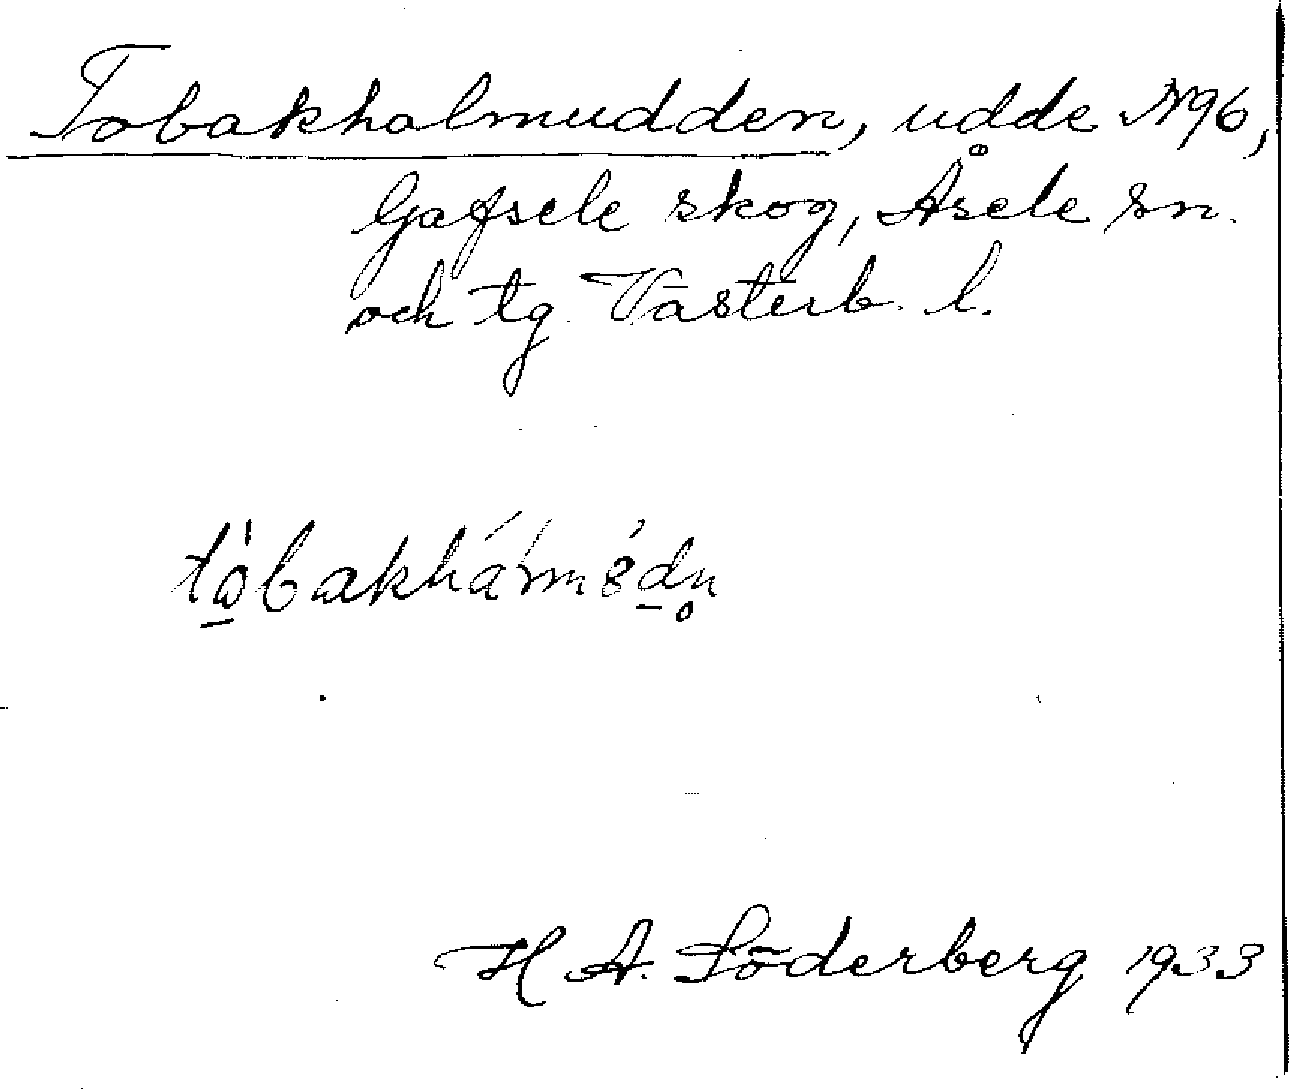 Tobakholmudden, udde N96,
Gafsele skog, Åsele sn.
och tg. Västerb. l.
H. A. Söderberg 1933